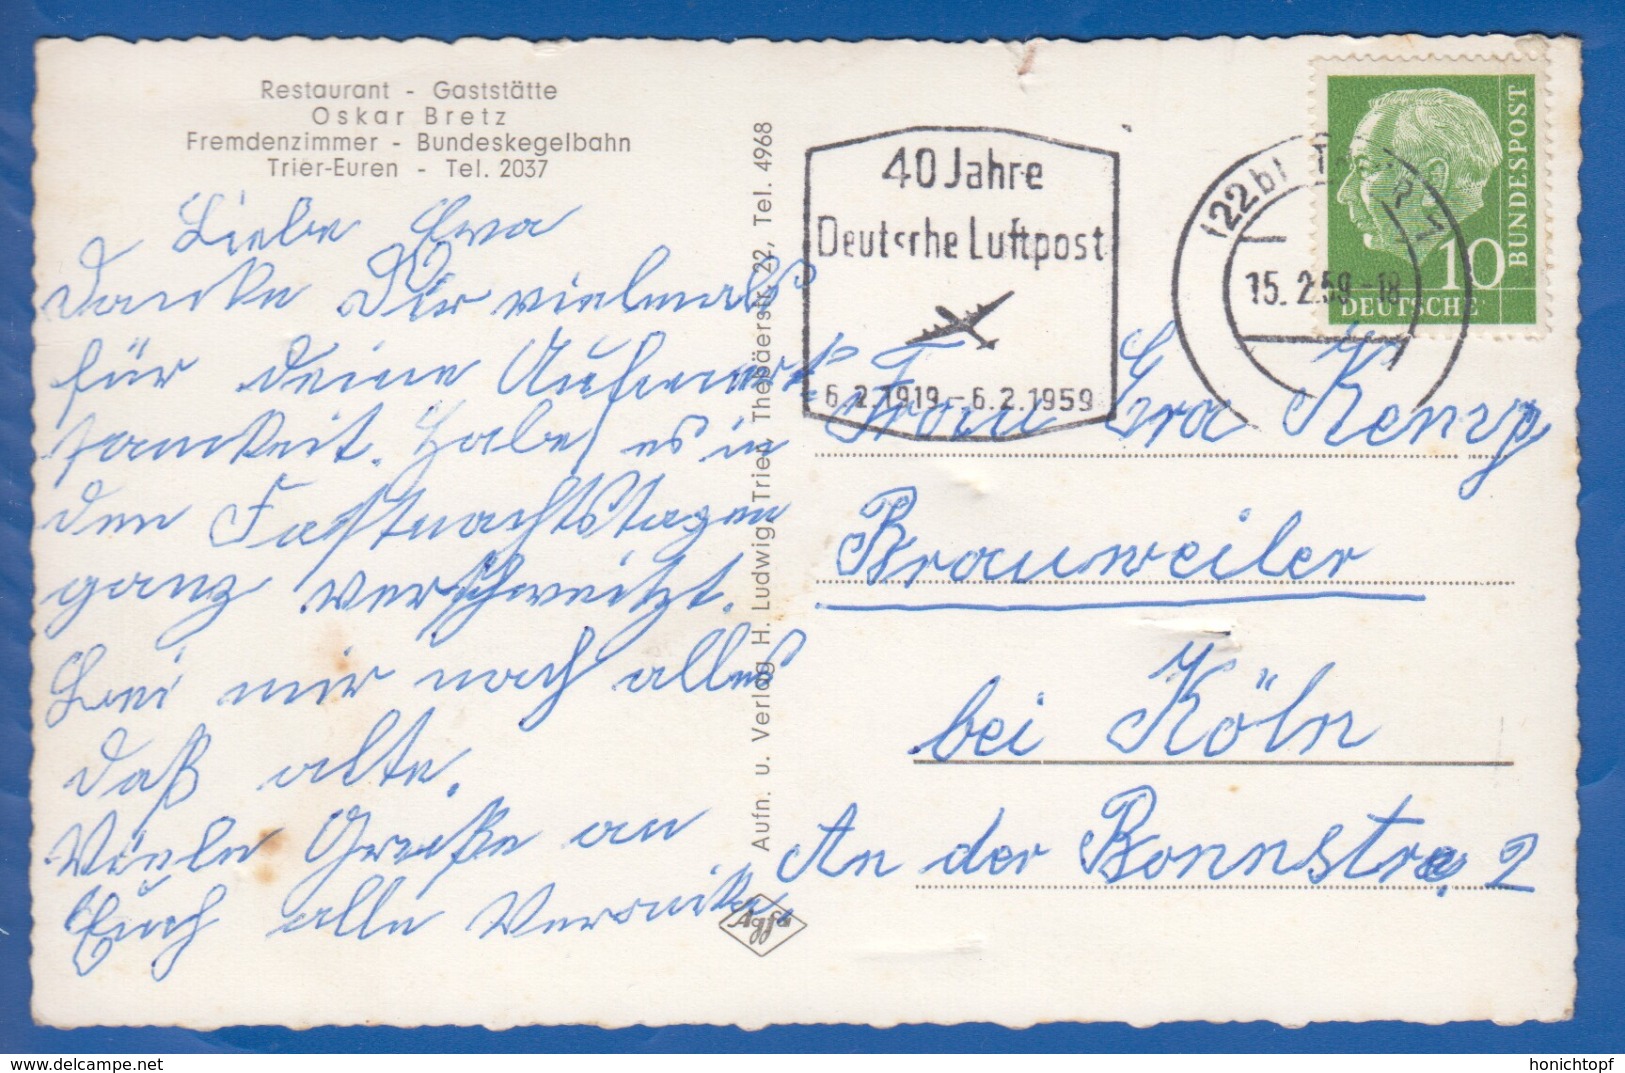 Restaurant - Gaststätte
Oskar Bretz
Fremdenzimmer - Bundeskegelbahn
Trier-Euren - Tel. 2037
Liebe Ewa
danke Dir vielmals
für deine Aufmerk
samkeit. Habe es in
den Fastnachtstagen
ganz verschwitzt.
Bei mir noch alles
daß alte.
Viele Grüße an
Euch alle Veronika.
Aufn. u. Verlag H. Ludwig, Trier, Thebäerstr. 22, Tel. 4968
Agfa
40 Jahre
Deutsche Luftpost
6.2.1919 - 6.2.1959
(22b) TRIER
15. 2.59.-18
DEUTSCHE
BUNDESPOST
10
Frau Eva Kemp
Brauweiler
bei Köln
An der Bonnstr. 2
delcampe.net
honichtopf